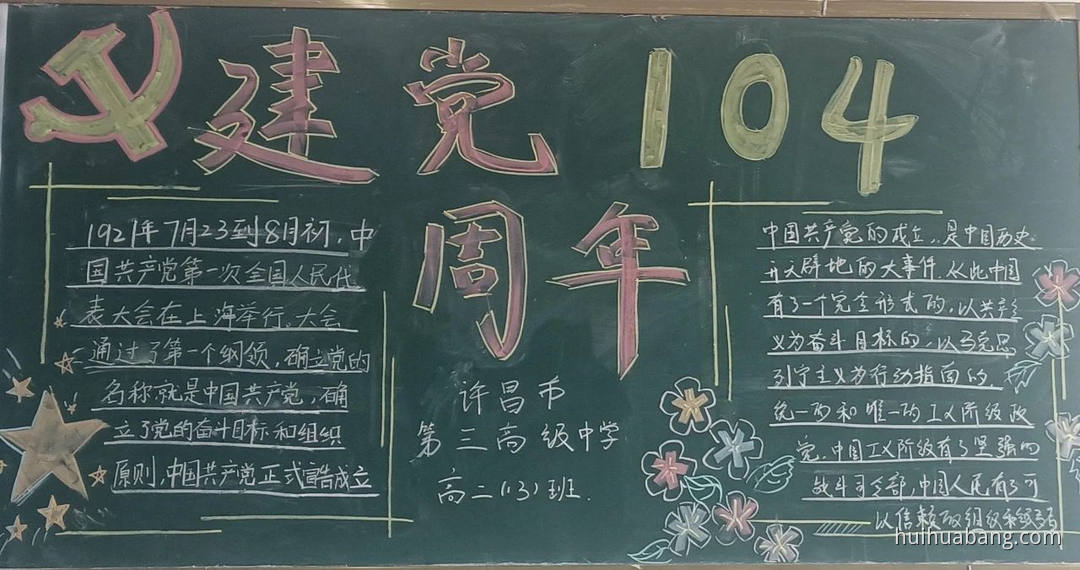 建党104
周年
1921年7月23到8月初，中
国共产党第一次全国人民代
表大会在上海举行。大会
通过了第一个纲领，确立党的
名称就是中国共产党，确
立了党的奋斗目标和组织
原则，中国共产党正式宣告成立
许昌市
第三高级中学
高二(13)班.
中国共产党的成立，是中国历史
开天辟地的大事件.从此中国
有了一个完全形式的，以共产主
义为奋斗目标的，以马克思
列宁主义为行动指南的，
统一的和唯一的工人阶级政
党.中国工人阶级有了坚强的
战斗司令部，中国人民有了可
以信赖的组织和领导者
huihuabang.com